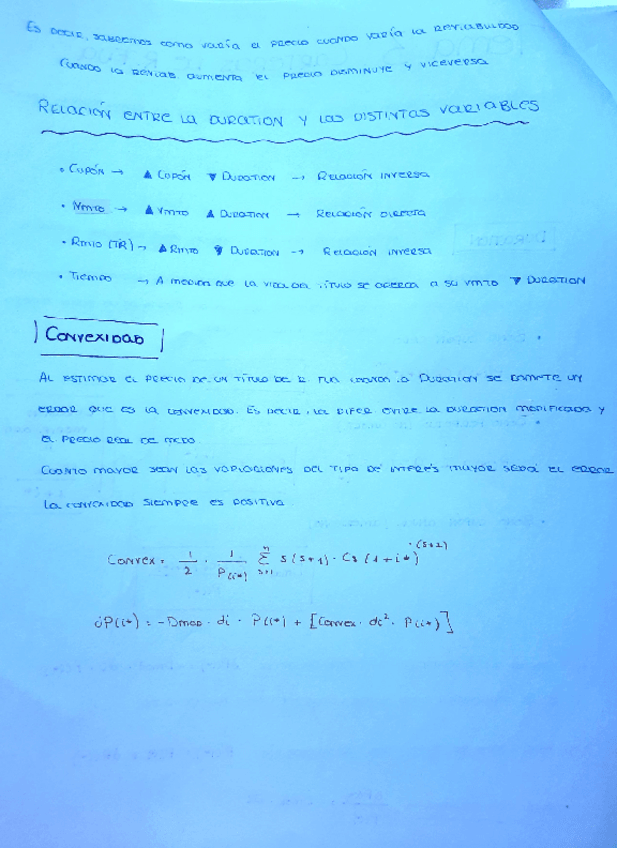 Es decir, sabremos como varía el precio cuando varía la rentabilidad
Cuando la rentab. aumenta el precio disminuye y viceversa
RELACIÓN ENTRE LA DURATION Y LAS DISTINTAS VARIABLES
• Cupón → ▲ Cupón ▼ Duration → Relación inversa
• Vmto → ▲ Vmto ▲ Duration → Relación directa
• Rmto (TIR) → ▲ Rmto ▼ Duration → Relación inversa
• Tiempo → A medida que la vida del título se acerca a su vmto ▼ Duration
CONVEXIDAD
Al estimar el precio de un título de R. Fija la Duration se comete un
error que es la convexidad. Es decir, la difer. entre la duration modificada y
el precio real de mcdo.
Cuanto mayor sean las variaciones del tipo de interés mayor será el error
La convexidad siempre es positiva
Convex = 1/2 · 1/P(i*) Σ s(s+1) · Cs (1+i*)^-(s+2)
n
s=1
dP(i*) = -Dmod · di · P(i*) + [Convex · di² · P(i*)]